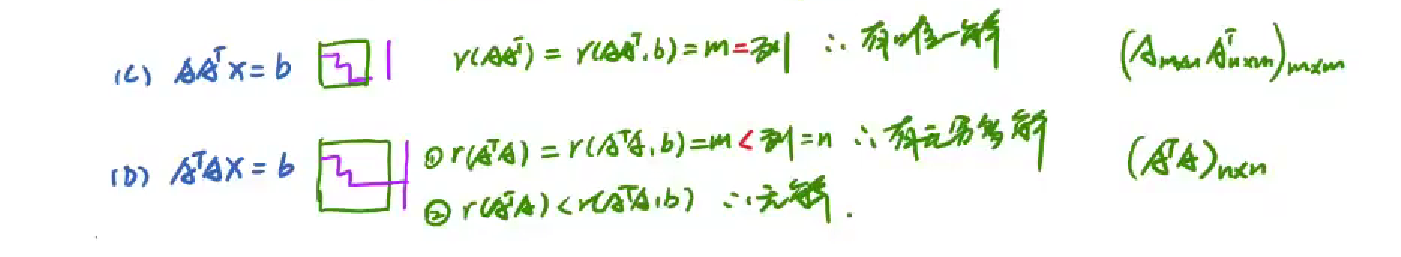 (C) AAᵀx = b r(AAᵀ) = r(AAᵀ, b) = m = 列 ∴ 有唯一解 (Aₘₓₙ Aᵀₙₓₘ)ₘₓₘ
(D) AᵀAx = b ① r(AᵀA) = r(AᵀA, b) = m < 列 = n ∴ 有无穷多解 (AᵀA)ₙₓₙ
② r(AᵀA) < r(AᵀA, b) ∴ 无解.